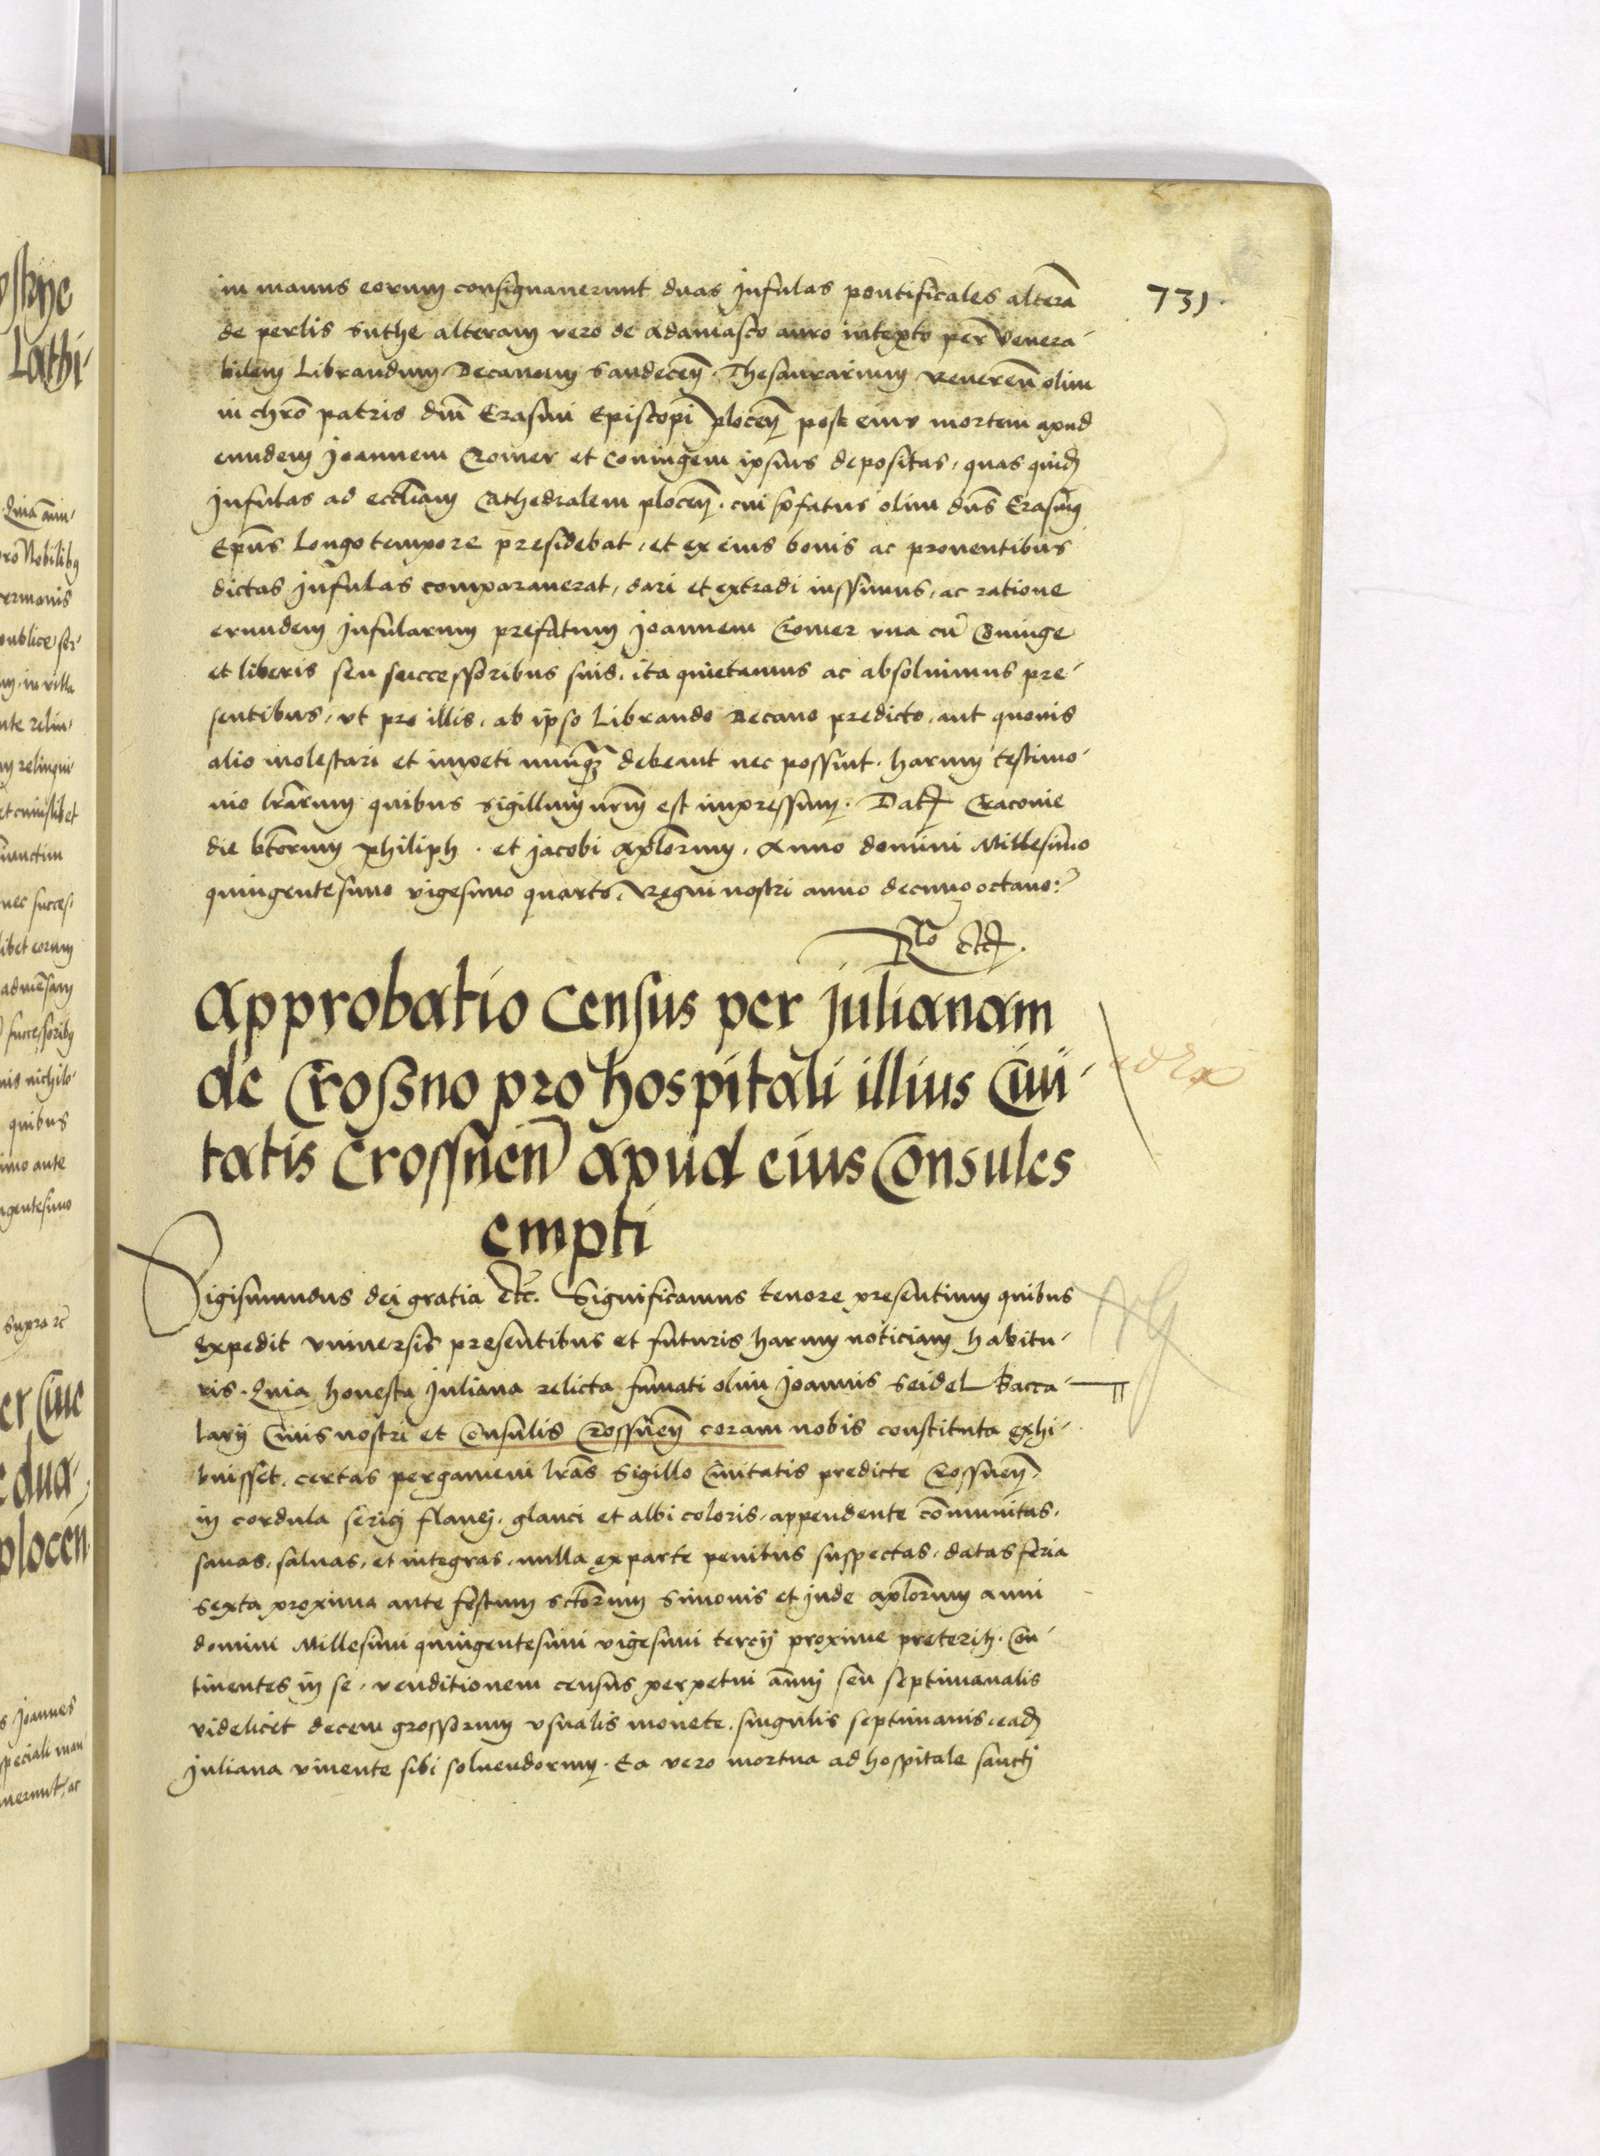 731.
in manus eorum consignauerunt duas jnfulas pontificales alterã
de perlis suthe alteram vero de Adamasco auro intexto per Venera-
bilem Librandum Decanum Sandeceñ. Thesaurarium Reuereñ olim
in chro patris dñi Erasmi Episcopi ploceñ post eius mortem apud
eundem Joannem Cromer et Coniugem ipsius depositas, quas quidẽ
jnfulas ad eccliam Cathedralem ploceñ. cui pfatus olim dñs Erasmꝰ
Epũs Longo tempore presidebat, et ex eius bonis ac prouentibus
dictas jnfulas comparauerat, dari et extradi iussimus, ac ratione
earundem jnfularum prefatum Joannem Cromer vna cũ Coniuge
et liberis seu successoribus suis, ita quietamus ac absoluimus pre-
sentibus, vt pro illis, ab ipso Librando Decano predicto, aut quouis
alio molestari et impeti nunq̃ debeant nec possint. harum testimo-
nio lrarum quibus sigillum nrm est impressum. Dat Cracouie
die btorum philiph. et Jacobi aplorum, Anno domini Millesimo
quingentesimo vigesimo quarto, Regni nostri anno decimo octauo:
Rlo
Approbatio Census per Julianam
de Crosszno pro hospitali illius Ciui-
tatis Crossneñ apud eius Consules
empti
Sigismundus dei gratia etc. Significamus tenore presentium quibus
Expedit vniuersis presentibus et futuris harum noticiam habitu-
ris. Quia honesta Juliana relicta famati olim Joannis Seidel Bacca-
larij Ciuis nostri et Consulis Crossneñ coram nobis constituta exhi-
buisset, certas pergameni lras Sigillo Ciuitatis predicte Crossneñ
in cordula serici flauej, glauci et albi coloris, appendente cõmunitas,
sanas, saluas, et integras, nulla ex parte penitus suspectas, datas feria
sexta proxima ante festum sctorum Simonis et jude aplorum anni
domini Millesimi quingentesimi vigesimi tercij proxime preteriti, Con-
tinentes in se, venditionem census perpetui annuj seu septimanalis
videlicet decem grossorum vsualis monete, singulis septimanis, eadẽ
Juliana viuente sibi soluendorum. Ea vero mortua ad hospitale sanctj